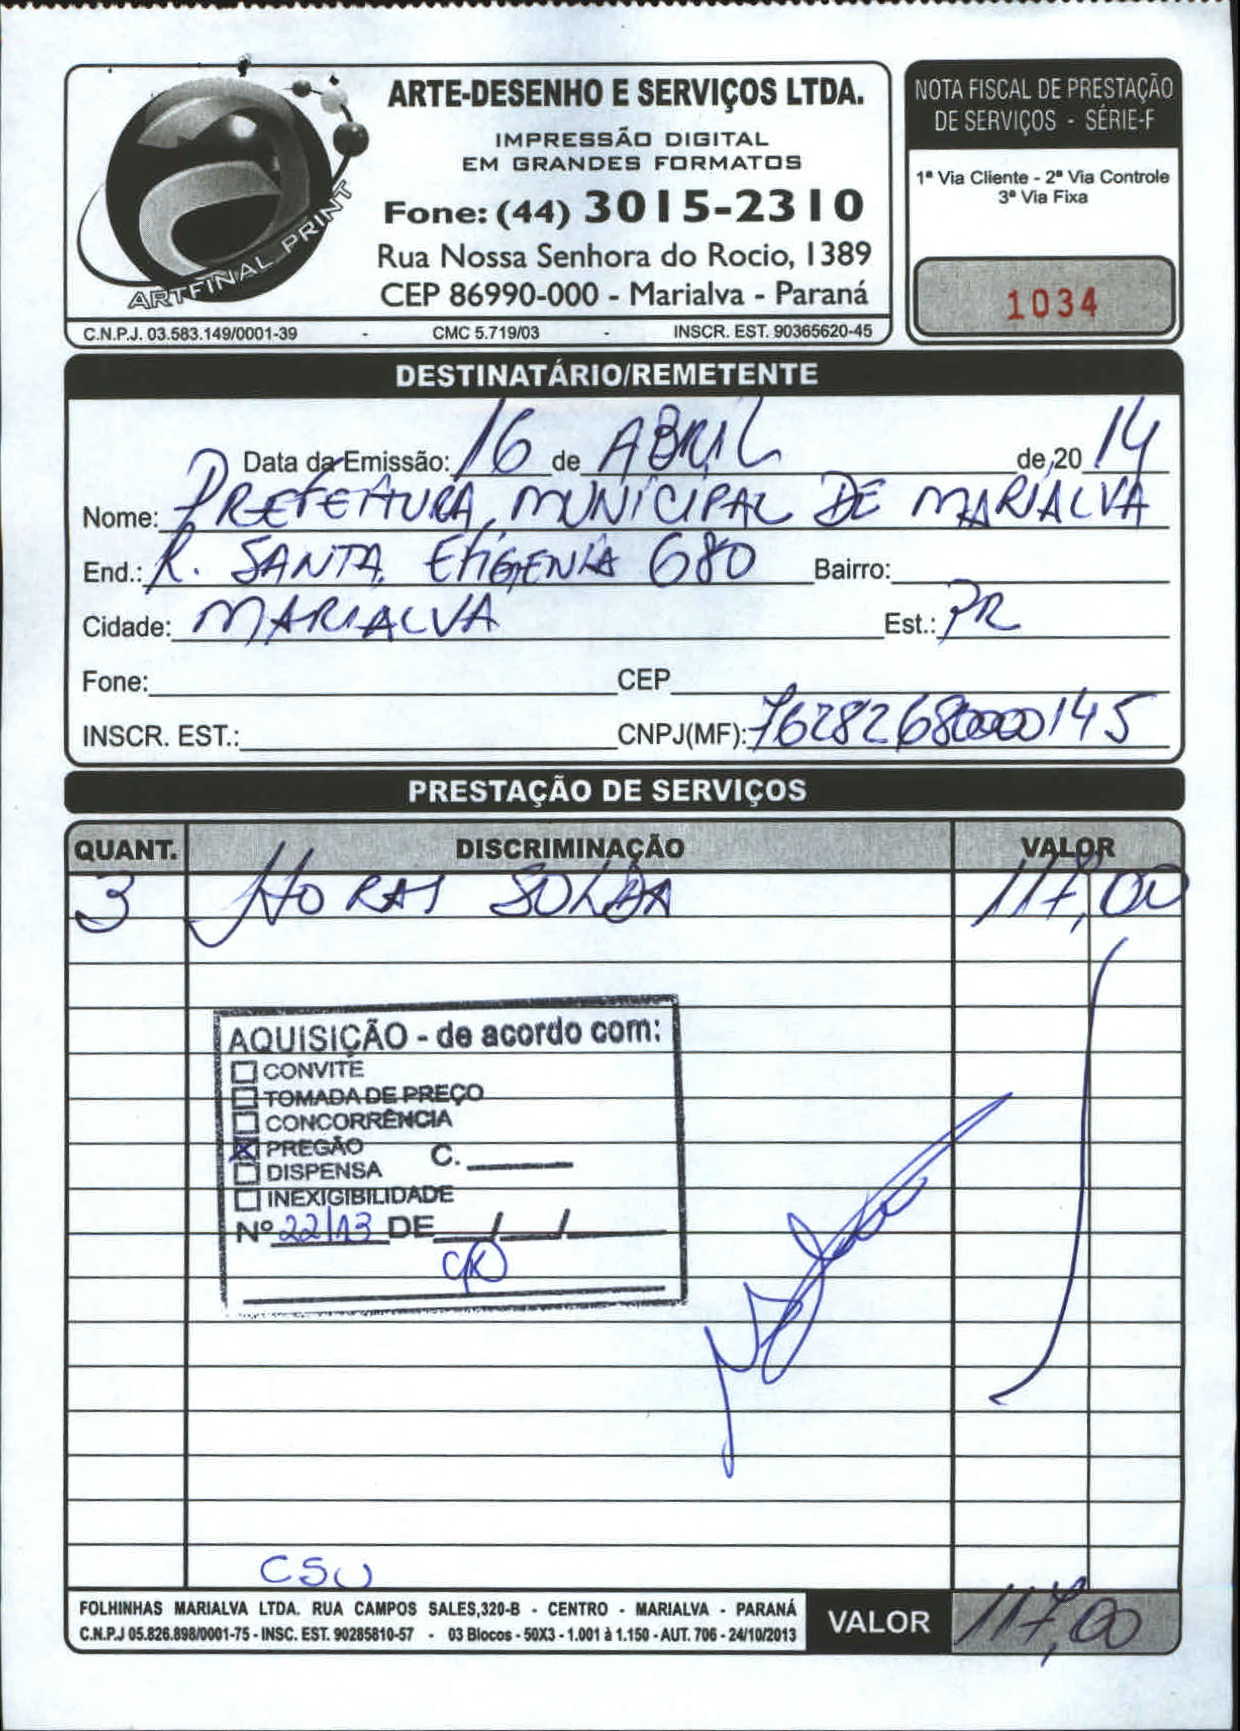 ARTE-DESENHO E SERVIÇOS LTDA.
IMPRESSÃO DIGITAL
EM GRANDES FORMATOS
Fone: (44) 3015-2310
Rua Nossa Senhora do Rocio, 1389
CEP 86990-000 - Marialva - Paraná
ARTFINAL PRINT
C.N.P.J. 03.583.149/0001-39 - CMC 5.719/03 - INSCR. EST. 90365620-45
NOTA FISCAL DE PRESTAÇÃO
DE SERVIÇOS - SÉRIE-F
1ª Via Cliente - 2ª Via Controle
3ª Via Fixa
1034
DESTINATÁRIO/REMETENTE
Data da Emissão: 16 de ABRIL de 20 14
Nome: PREFEITURA MUNICIPAL DE MARIALVA
End.: R. SANTA EFIGENIA 680 Bairro:
Cidade: MARIALVA Est.: PR
Fone: CEP
INSCR. EST.: CNPJ(MF): 76282680000145
PRESTAÇÃO DE SERVIÇOS
QUANT. DISCRIMINAÇÃO VALOR
3 HORAS SOLDA 117,00
AQUISIÇÃO - de acordo com:
CONVITE
TOMADA DE PREÇO
CONCORRÊNCIA
X PREGÃO C.
DISPENSA
INEXIGIBILIDADE
Nº 22/13 DE / /
CSU
FOLHINHAS MARIALVA LTDA. RUA CAMPOS SALES,320-B - CENTRO - MARIALVA - PARANÁ
C.N.P.J 05.826.898/0001-75 - INSC. EST. 90285810-57 - 03 Blocos - 50X3 - 1.001 à 1.150 - AUT. 706 - 24/10/2013
VALOR 117,00